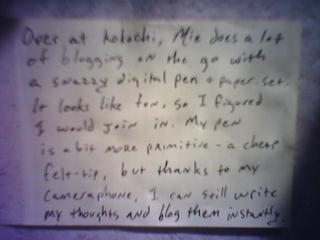 Over at kokochi, Mie does a lot
of blogging on the go with
a swazzy digital pen + paper set.
It looks like fun, so I figured
I would join in. My pen
is a bit more primitive - a cheap
felt-tip, but thanks to my
cameraphone, I can still write
my thoughts and blog them instantly.